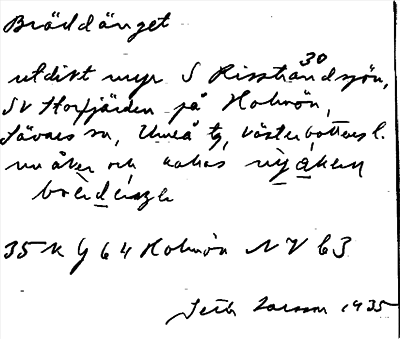 Bräddänget
utdikt myr S Risstrandsjön,
30
SV Storfjärden på Holmön,
Sävars sn, Umeå tg, Västerbottens l.
nu åker och kallas nyåkern
35 K g 64 Holmön NV 63
Seth Larsson 1935